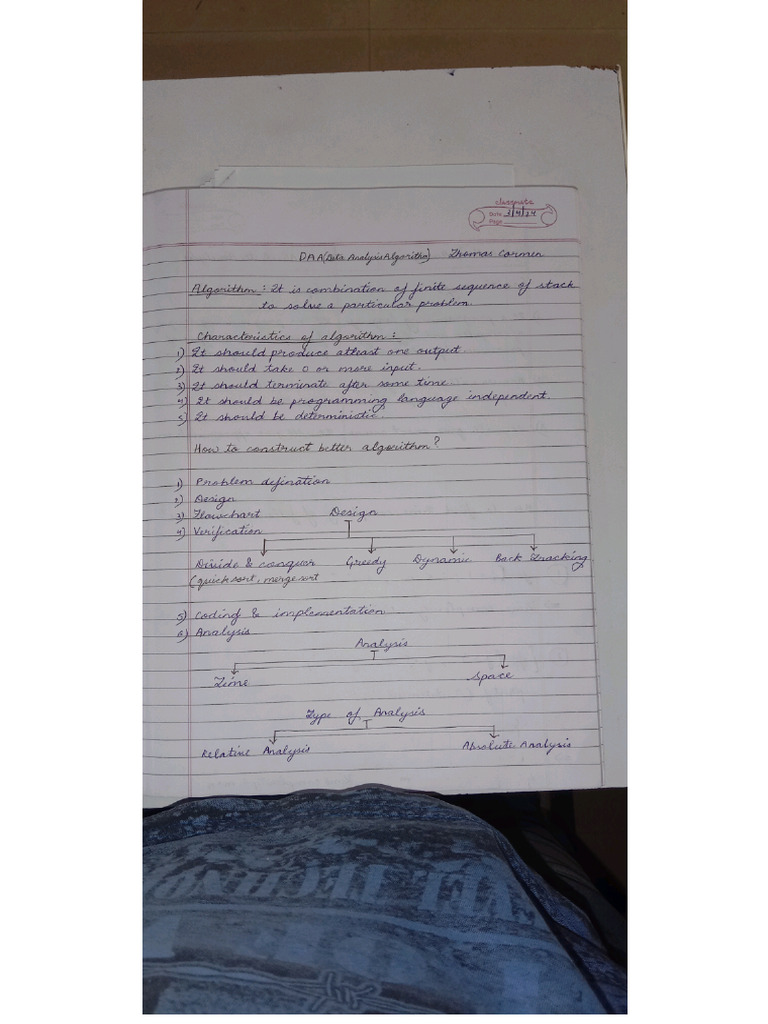 classmate
Date 2/4/24
Page
DAA (Data Analysis Algorithm) Thomas Cormen
Algorithm : It is combination of finite sequence of stack
to solve a particular problem.
Characteristics of algorithm :
1) It should produce atleast one output.
2) It should take 0 or more input.
3) It should terminate after some time.
4) It should be programming language independent.
5) It should be deterministic.
How to construct better algorithm?
1) Problem defination
2) Design
3) Flowchart Design
4) Verification
Divide & conquor Greedy Dynamic Back Tracking
(quick sort, merge sort
5) Coding & implementation
6) Analysis
Analysis
Time Space
Type of Analysis
Relative Analysis Absolute Analysis